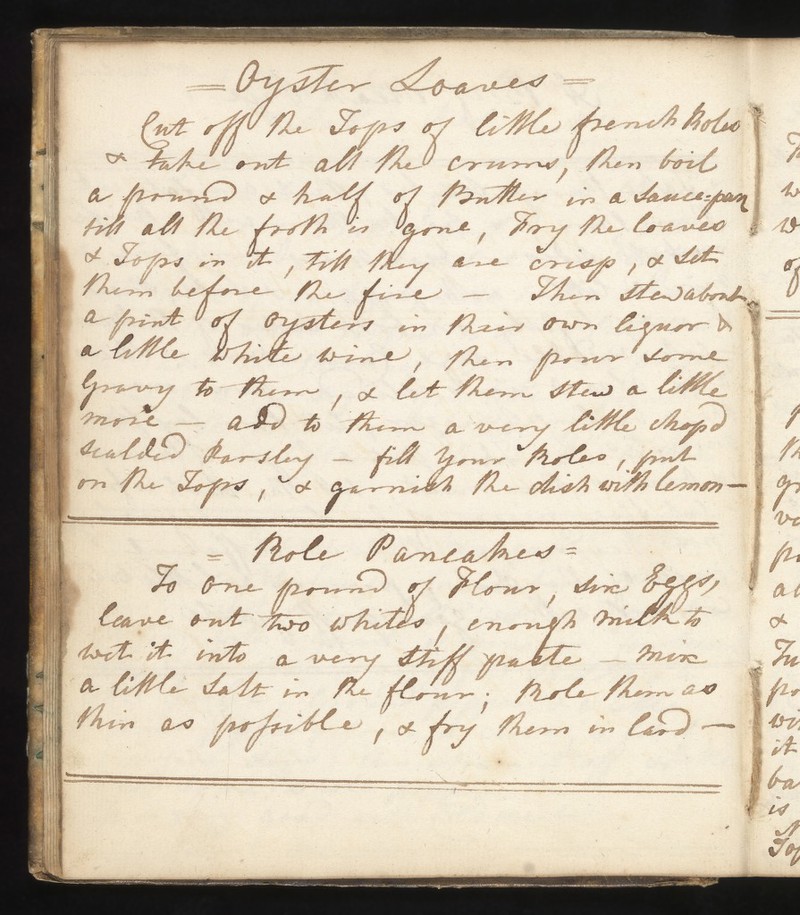 = Oyster Loaves =
Cut off the Tops of little french Roles
& take out all the crums, then boil
a pound & half of Butter in a sauce=pan
till all the froth is gone, Fry the loaves
& Tops in it, till they are crisp, & set
them before the fire — Then stew about
a pint of oysters in their own liquor &
a little white wine, then pour some
Gravy to them, & let them stew a little
more — add to them a very little chop'd
scalded Parsley — fill your Roles, put
on the Tops, & garnish the dish with lemon —
= Role Pancakes =
To one pound of Flour, six Eggs,
leave out two whites, enough milk to
wet it into a very stiff paste — mix
a little salt in the flour; Role them as
thin as possible, & fry them in lard —